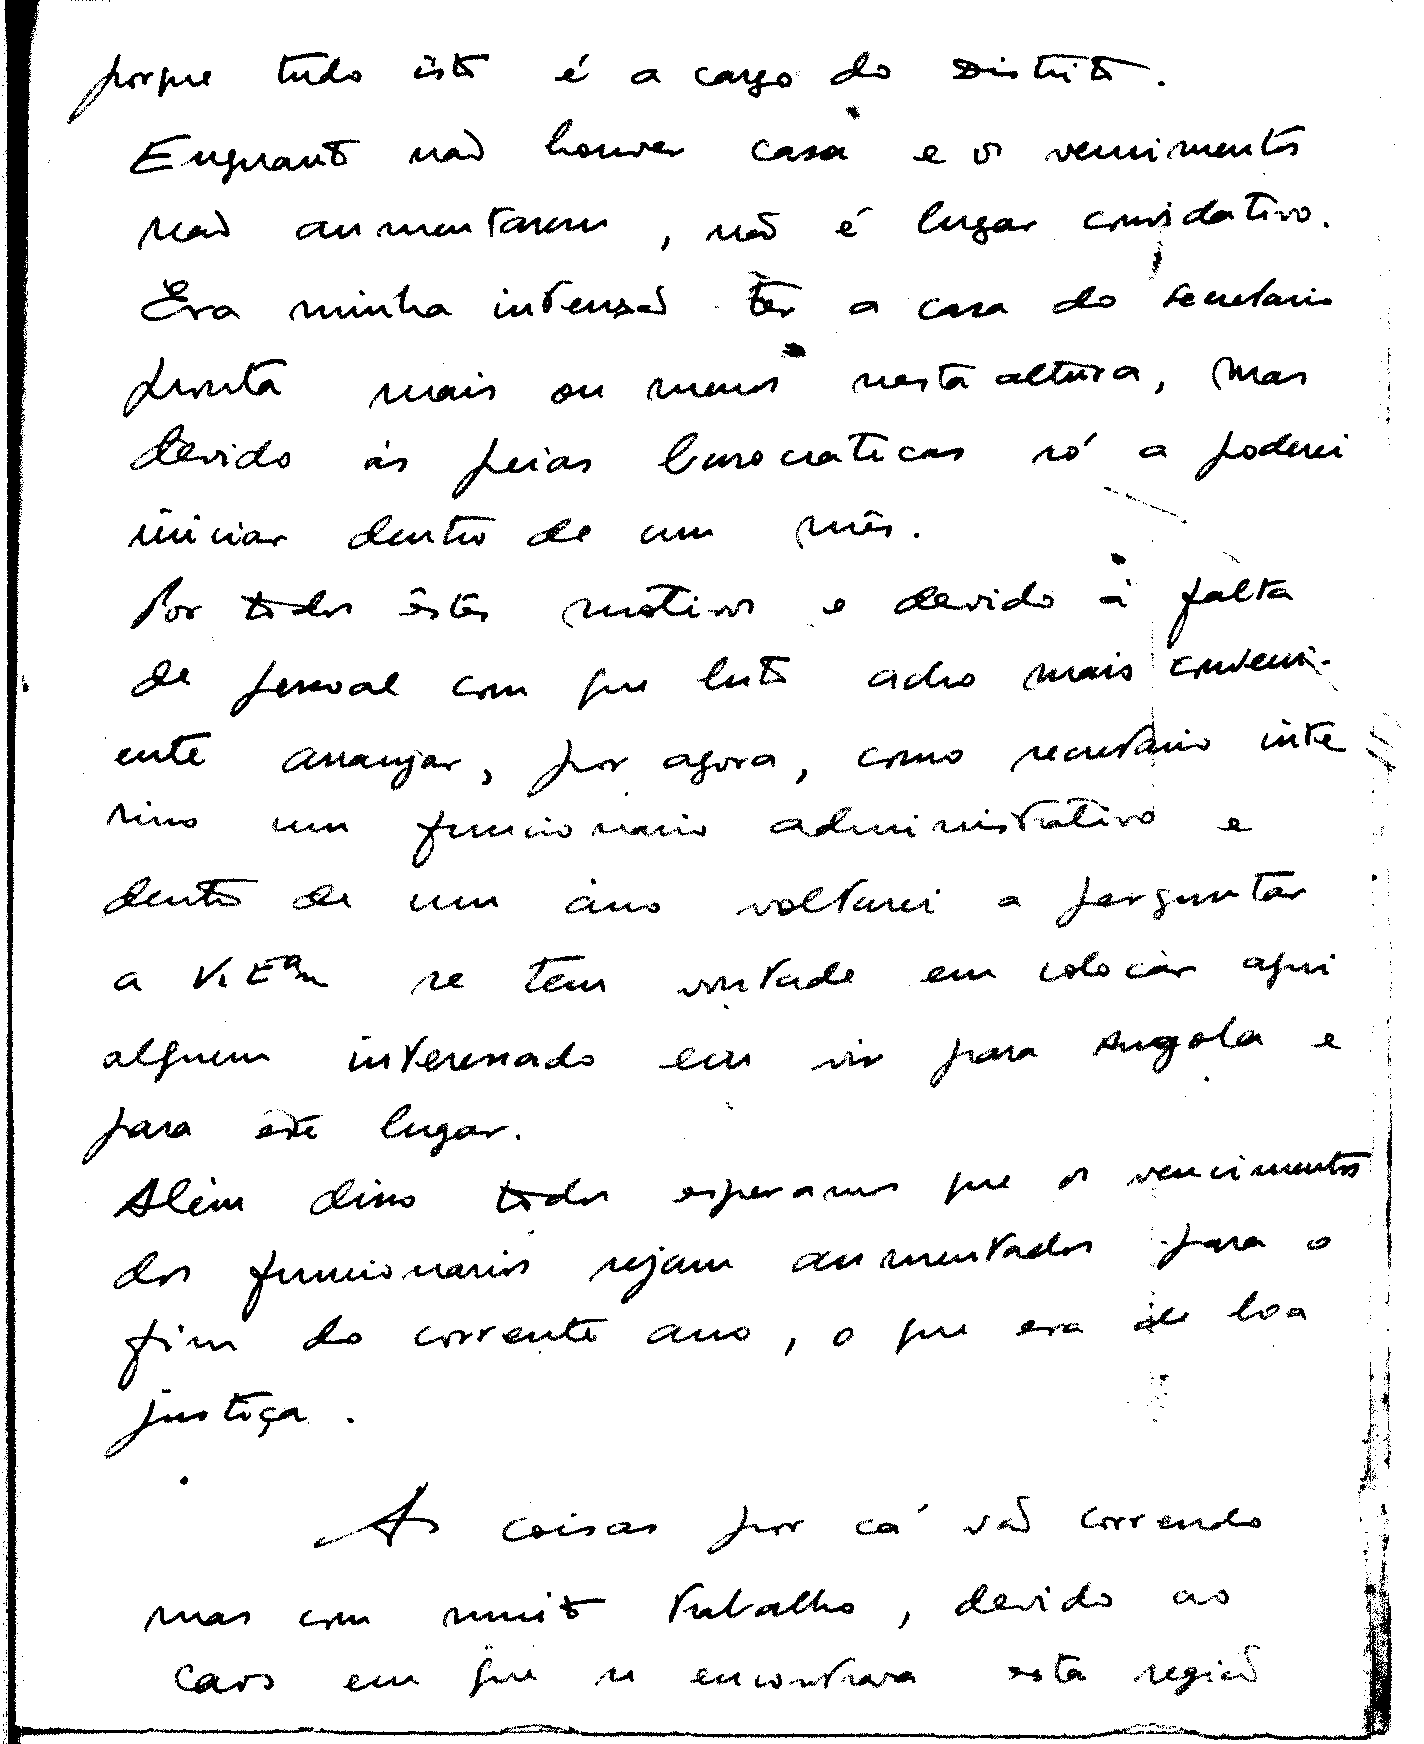 porque tudo isto é a cargo do Distrito.
Enquanto não houver casa e os vencimentos
não aumentarem, não é lugar convidativo.
Era minha intensão ter a casa do secretario
pronta mais ou menos nesta altura, mas
devido ás peias burocraticas só a poderei
iniciar dentro de um mês.
Por todos êstes motivos e devido á falta
de pessoal com que luto acho mais conveni-
ente arranjar, por agora, como secretário inte
rino um funcionario administrativo e
dentro de um ano voltarei a perguntar
a V. Exª se tem vontade em colocar aqui
alguem interessado em vir para Angola e
para este lugar.
Além disso todos esperamos que os vencimentos
dos funcionarios sejam aumentados para o
fim do corrente ano, o que era de boa
justiça.
As coisas por cá vão correndo
mas com muito trabalho, devido ao
caos em que se encontrava esta região